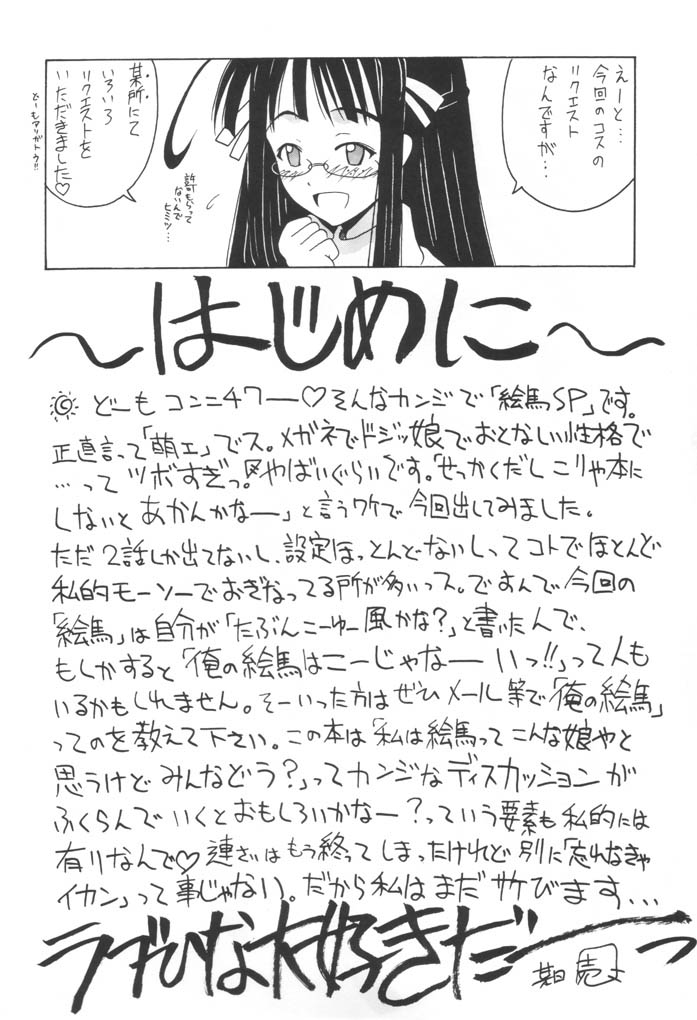 えーと…
今回のコスの
リクエスト
なんですが…
某所にて
いろいろ
リクエストを
いただきました♡
どーもアリガトウ!!
許可もらって
ないんで
ヒミツ…
～はじめに～
どーもコンニチワー♡そんなカンジで「絵馬SP」です。
正直言って「萌エ」でス。メガネでドジッ娘でおとなしい性格で
…ってツボすぎっ。やばいぐらいです。「せっかくだし こりゃ本に
しないと あかんかなー」と言うワケで今回出してみました。
ただ2話しか出てないし、設定ほっとんどないしってコトでほとんど
私的モーソーでおぎなってる所が多いっス。ですんで今回の
「絵馬」は自分が「たぶんこーゆー風かな?」と書いたんで、
もしかすると「俺の絵馬はこーじゃなーいっ!!」って人も
いるかもしれません。そーいった方はぜひメール等で「俺の絵馬」
ってのを教えて下さい。この本は「私は絵馬ってこんな娘やと
思うけど みんなどう?」ってカンジなディスカッションが
ふくらんでいくとおもしろいかなー?っていう要素も私的には
有りなんで♡連さいはもう終ってしまったけれど別に「忘れなきゃ
イカン」って事じゃない。だから私はまだサケびます…
ラブひな大好きだーっ